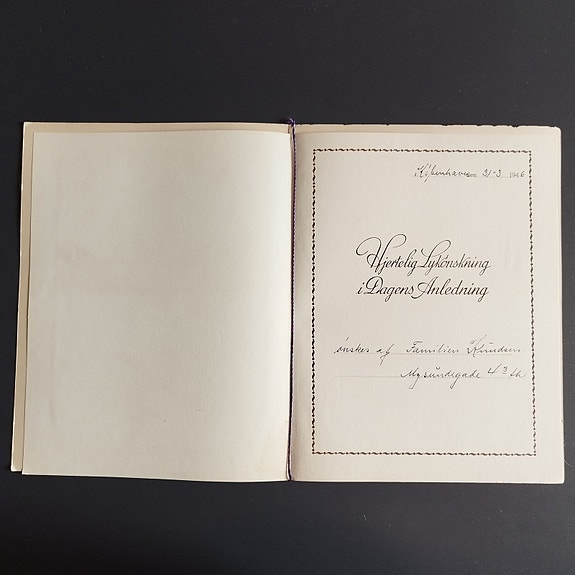 København 21-3 1946
Hjertelig Lykønskning
i Dagens Anledning
ønskes af Familien Knudsen
Mysundegade 4 3 th